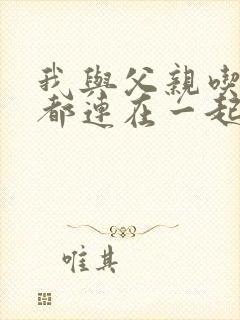 我與父親喫
都連在一起
唯其